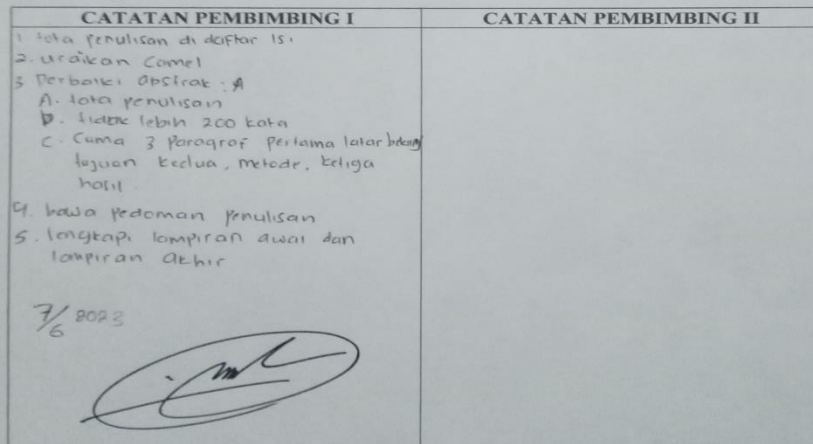 CATATAN PEMBIMBING I
CATATAN PEMBIMBING II
1. tata penulisan di daftar isi
2. uraikan Camel
3. Perbaiki abstrak : A
A. tata penulisan
b. tidak lebih 200 kata
c. Cuma 3 Paragraf Pertama latar belakang
tujuan kedua, metode, ketiga
hasil
4. bawa pedoman penulisan
5. lengkapi lampiran awal dan
lampiran akhir
7/6 2023